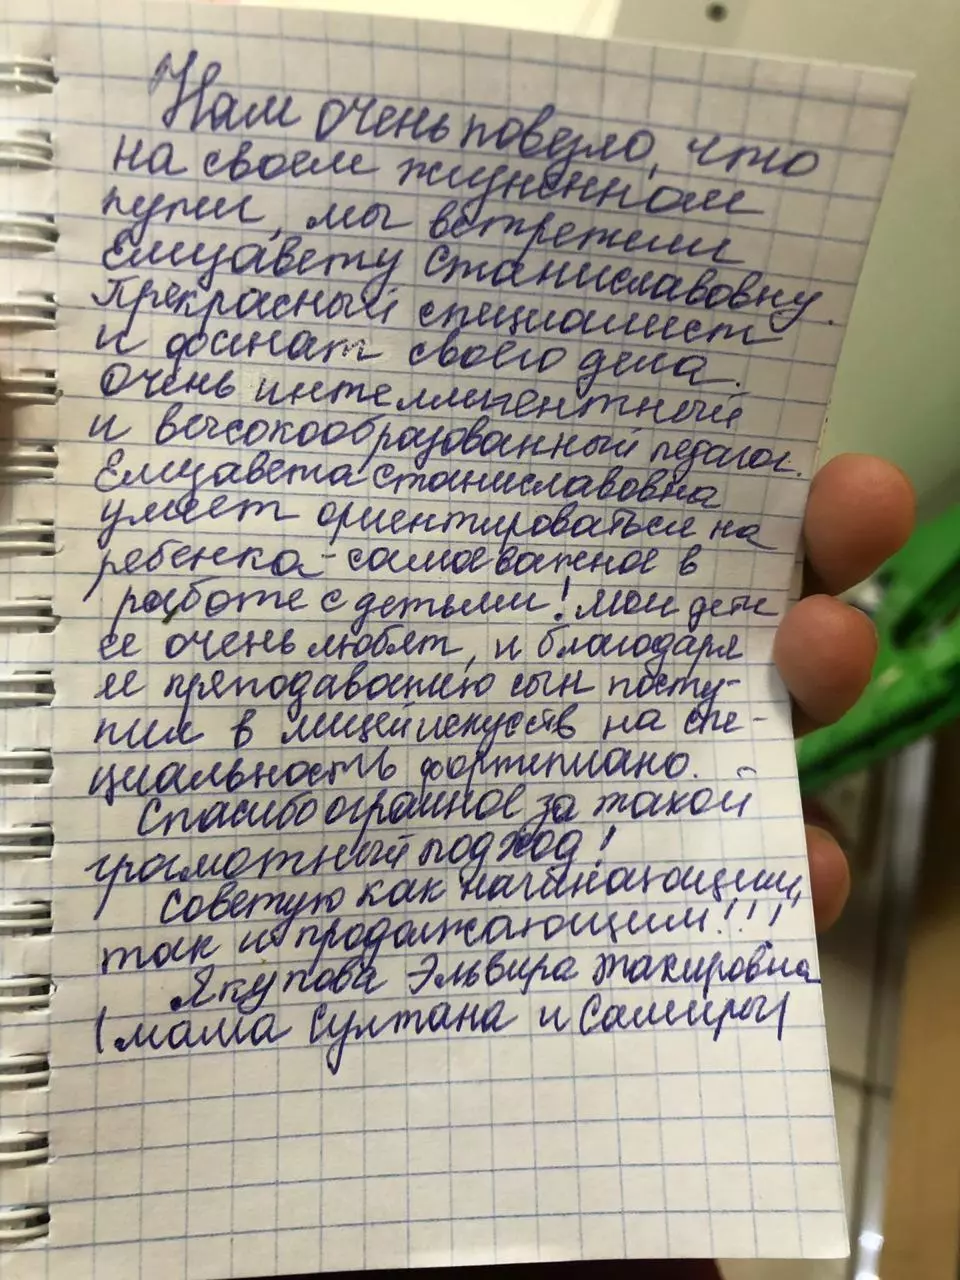 Нам очень повезло, что
на своем жизненном
пути, мы встретили
Елизавету Станиславовну.
Прекрасный специалист
и фанат своего дела.
Очень интеллигентный
и высокообразованный педагог.
Елизавета Станиславовна
умеет ориентироваться на
ребенка - самое важное в
работе с детьми! Мои дети
ее очень любят, и благодаря
ее преподаванию сын посту-
пил в лицей искусств на спе-
циальность фортепиано.
Спасибо огромное за такой
грамотный подход!
Советую как начинающим,
так и продолжающим!!!
Якупова Эльвира Закировна
(мама Султана и Самиры)